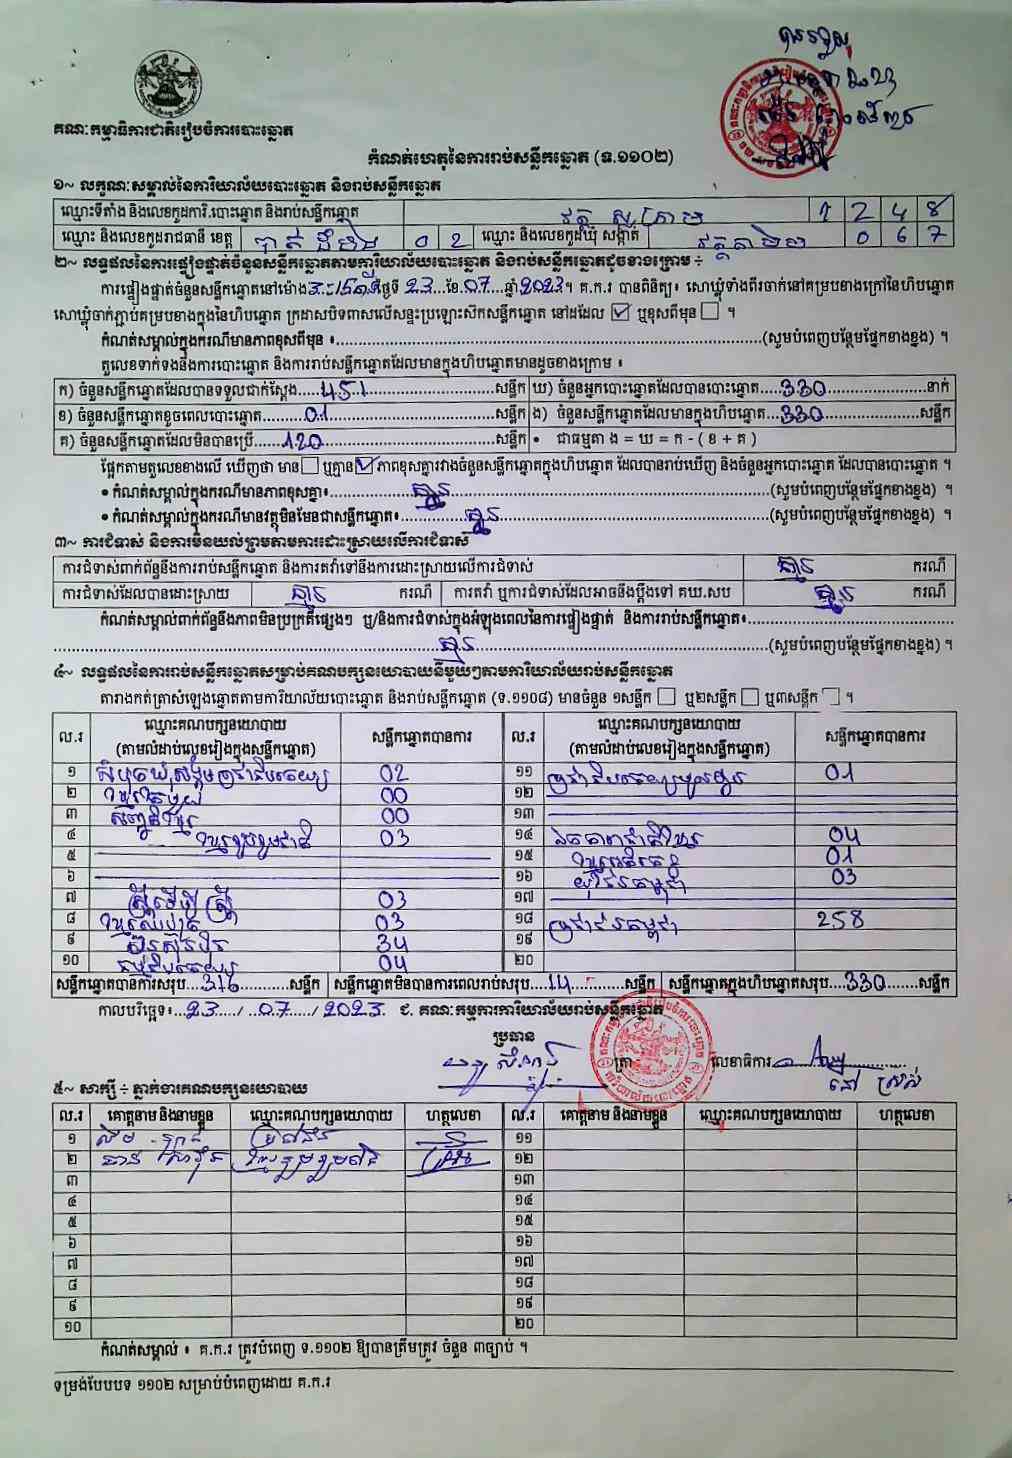 គណៈកម្មាធិការជាតិរៀបចំការបោះឆ្នោត
កំណត់ហេតុនៃការរាប់សន្លឹកឆ្នោត (ទ.១១០២)
១~ លក្ខណៈសម្គាល់នៃការិយាល័យបោះឆ្នោត និងរាប់សន្លឹកឆ្នោត
ឈ្មោះទីតាំង និងលេខកូដការិ.បោះឆ្នោត និងរាប់សន្លឹកឆ្នោត វត្ត 1 2 4 8
ឈ្មោះ និងលេខកូដរាជធានី ខេត្ត បាត់ដំបង 0 2 ឈ្មោះ និងលេខកូដឃុំ សង្កាត់ វត្តតាមិម 0 6 7
២~ លទ្ធផលនៃការផ្ទៀងផ្ទាត់ចំនួនសន្លឹកឆ្នោតតាមការិយាល័យបោះឆ្នោត និងរាប់សន្លឹកឆ្នោតដូចខាងក្រោម ÷
ការផ្ទៀងផ្ទាត់ចំនួនសន្លឹកឆ្នោតនៅម៉ោង ថ្ងៃទី 23 ខែ 07 ឆ្នាំ 2023 ។ គ.ក.រ បានពិនិត្យ៖ សោឃ្លុំទាំងពីរចាក់នៅគម្របខាងក្រៅនៃហិបឆ្នោត
សោឃ្លុំចាក់ភ្ជាប់គម្របខាងក្នុងនៃហិបឆ្នោត ក្រដាសបិទពាសលើសន្ទះប្រឡោះស៊កសន្លឹកឆ្នោត នៅដដែល ☑ ឬខុសពីមុន ☐ ។
កំណត់សម្គាល់ក្នុងករណីមានភាពខុសពីមុន ៖ (សូមបំពេញបន្ថែមផ្នែកខាងខ្នង) ។
តួលេខទាក់ទងនឹងការបោះឆ្នោត និងការរាប់សន្លឹកឆ្នោតដែលមានក្នុងហិបឆ្នោតមានដូចខាងក្រោម ៖
ក) ចំនួនសន្លឹកឆ្នោតដែលបានទទួលជាក់ស្តែង 451 សន្លឹក ឃ) ចំនួនអ្នកបោះឆ្នោតដែលបានបោះឆ្នោត 330 នាក់
ខ) ចំនួនសន្លឹកឆ្នោតខូចពេលបោះឆ្នោត 01 សន្លឹក ង) ចំនួនសន្លឹកឆ្នោតដែលមានក្នុងហិបឆ្នោត 330 សន្លឹក
គ) ចំនួនសន្លឹកឆ្នោតដែលមិនបានប្រើ 120 សន្លឹក • ជាធម្មតា ង = ឃ = ក - ( ខ + គ )
ផ្អែកតាមតួលេខខាងលើ ឃើញថា មាន ☐ ឬគ្មាន ☑ ភាពខុសគ្នារវាងចំនួនសន្លឹកឆ្នោតក្នុងហិបឆ្នោត ដែលបានរាប់ឃើញ និងចំនួនអ្នកបោះឆ្នោត ដែលបានបោះឆ្នោត ។
• កំណត់សម្គាល់ក្នុងករណីមានភាពខុសគ្នា៖ គ្មាន (សូមបំពេញបន្ថែមផ្នែកខាងខ្នង) ។
• កំណត់សម្គាល់ក្នុងករណីមានវត្ថុមិនមែនជាសន្លឹកឆ្នោត៖ គ្មាន (សូមបំពេញបន្ថែមផ្នែកខាងខ្នង) ។
៣~ ការជំទាស់ និងការមិនយល់ព្រមតាមការដោះស្រាយលើការជំទាស់
ការជំទាស់ពាក់ព័ន្ធនឹងការរាប់សន្លឹកឆ្នោត និងការតវ៉ាទៅនឹងការដោះស្រាយលើការជំទាស់ គ្មាន ករណី
ការជំទាស់ដែលបានដោះស្រាយ គ្មាន ករណី ការតវ៉ា ឬការជំទាស់ដែលអាចនឹងប្តឹងទៅ គឃ.សប គ្មាន ករណី
កំណត់សម្គាល់ពាក់ព័ន្ធនឹងភាពមិនប្រក្រតីផ្សេងៗ ឬ/និងការជំទាស់ក្នុងអំឡុងពេលនៃការផ្ទៀងផ្ទាត់ និងការរាប់សន្លឹកឆ្នោត៖
គ្មាន (សូមបំពេញបន្ថែមផ្នែកខាងខ្នង) ។
៤~ លទ្ធផលនៃការរាប់សន្លឹកឆ្នោតសម្រាប់គណបក្សនយោបាយនីមួយៗតាមការិយាល័យរាប់សន្លឹកឆ្នោត
តារាងកត់ត្រាសំឡេងឆ្នោតតាមការិយាល័យបោះឆ្នោត និងរាប់សន្លឹកឆ្នោត (ទ.១១០៨) មានចំនួន ១សន្លឹក ☐ ឬ២សន្លឹក ☐ ឬ៣សន្លឹក ☐ ។
ល.រ ឈ្មោះគណបក្សនយោបាយ (តាមលំដាប់លេខរៀងក្នុងសន្លឹកឆ្នោត) សន្លឹកឆ្នោតបានការ ល.រ ឈ្មោះគណបក្សនយោបាយ (តាមលំដាប់លេខរៀងក្នុងសន្លឹកឆ្នោត) សន្លឹកឆ្នោតបានការ
១ សំបុកឃ្មុំសង្គមប្រជាធិបតេយ្យ 02 ១១ ប្រជាធិបតេយ្យមូលដ្ឋាន 01
២ ខ្មែរតែមួយ 00 ១២
៣ សញ្ជាតិខ្មែរ 00 ១៣
៤ ខ្មែររួបរួមជាតិ 03 ១៤ ឯកភាពជាតិខ្មែរ 04
៥ ១៥ ខ្មែរអភិរក្ស 01
៦ ១៦ យុវជនកម្ពុជា 03
៧ ស្ត្រីដើម្បីស្ត្រី 03 ១៧
៨ ខ្មែរឈប់ក្រ 03 ១៨ ប្រជាជនកម្ពុជា 258
៩ ហ៊្វុនស៊ិនប៉ិច 34 ១៩
១០ ធម្មាធិបតេយ្យ 04 ២០
សន្លឹកឆ្នោតបានការសរុប 316 សន្លឹក សន្លឹកឆ្នោតមិនបានការពេលរាប់សរុប 14 សន្លឹក សន្លឹកឆ្នោតក្នុងហិបឆ្នោតសរុប 330 សន្លឹក
កាលបរិច្ឆេទ៖ 23 / 07 / 2023 ជ. គណៈកម្មការការិយាល័យរាប់សន្លឹកឆ្នោត
ប្រធាន
ត្រា លេខាធិការ
៥~ សាក្សី ÷ ភ្នាក់ងារគណបក្សនយោបាយ
ល.រ គោត្តនាម និងនាមខ្លួន ឈ្មោះគណបក្សនយោបាយ ហត្ថលេខា ល.រ គោត្តនាម និងនាមខ្លួន ឈ្មោះគណបក្សនយោបាយ ហត្ថលេខា
១ ១១
២ ខ្មែររួបរួមជាតិ ១២
៣ ១៣
៤ ១៤
៥ ១៥
៦ ១៦
៧ ១៧
៨ ១៨
៩ ១៩
១០ ២០
កំណត់សម្គាល់ ៖ គ.ក.រ ត្រូវបំពេញ ទ.១១០២ ឱ្យបានត្រឹមត្រូវ ចំនួន ៣ច្បាប់ ។
ទម្រង់បែបបទ ១១០២ សម្រាប់បំពេញដោយ គ.ក.រ